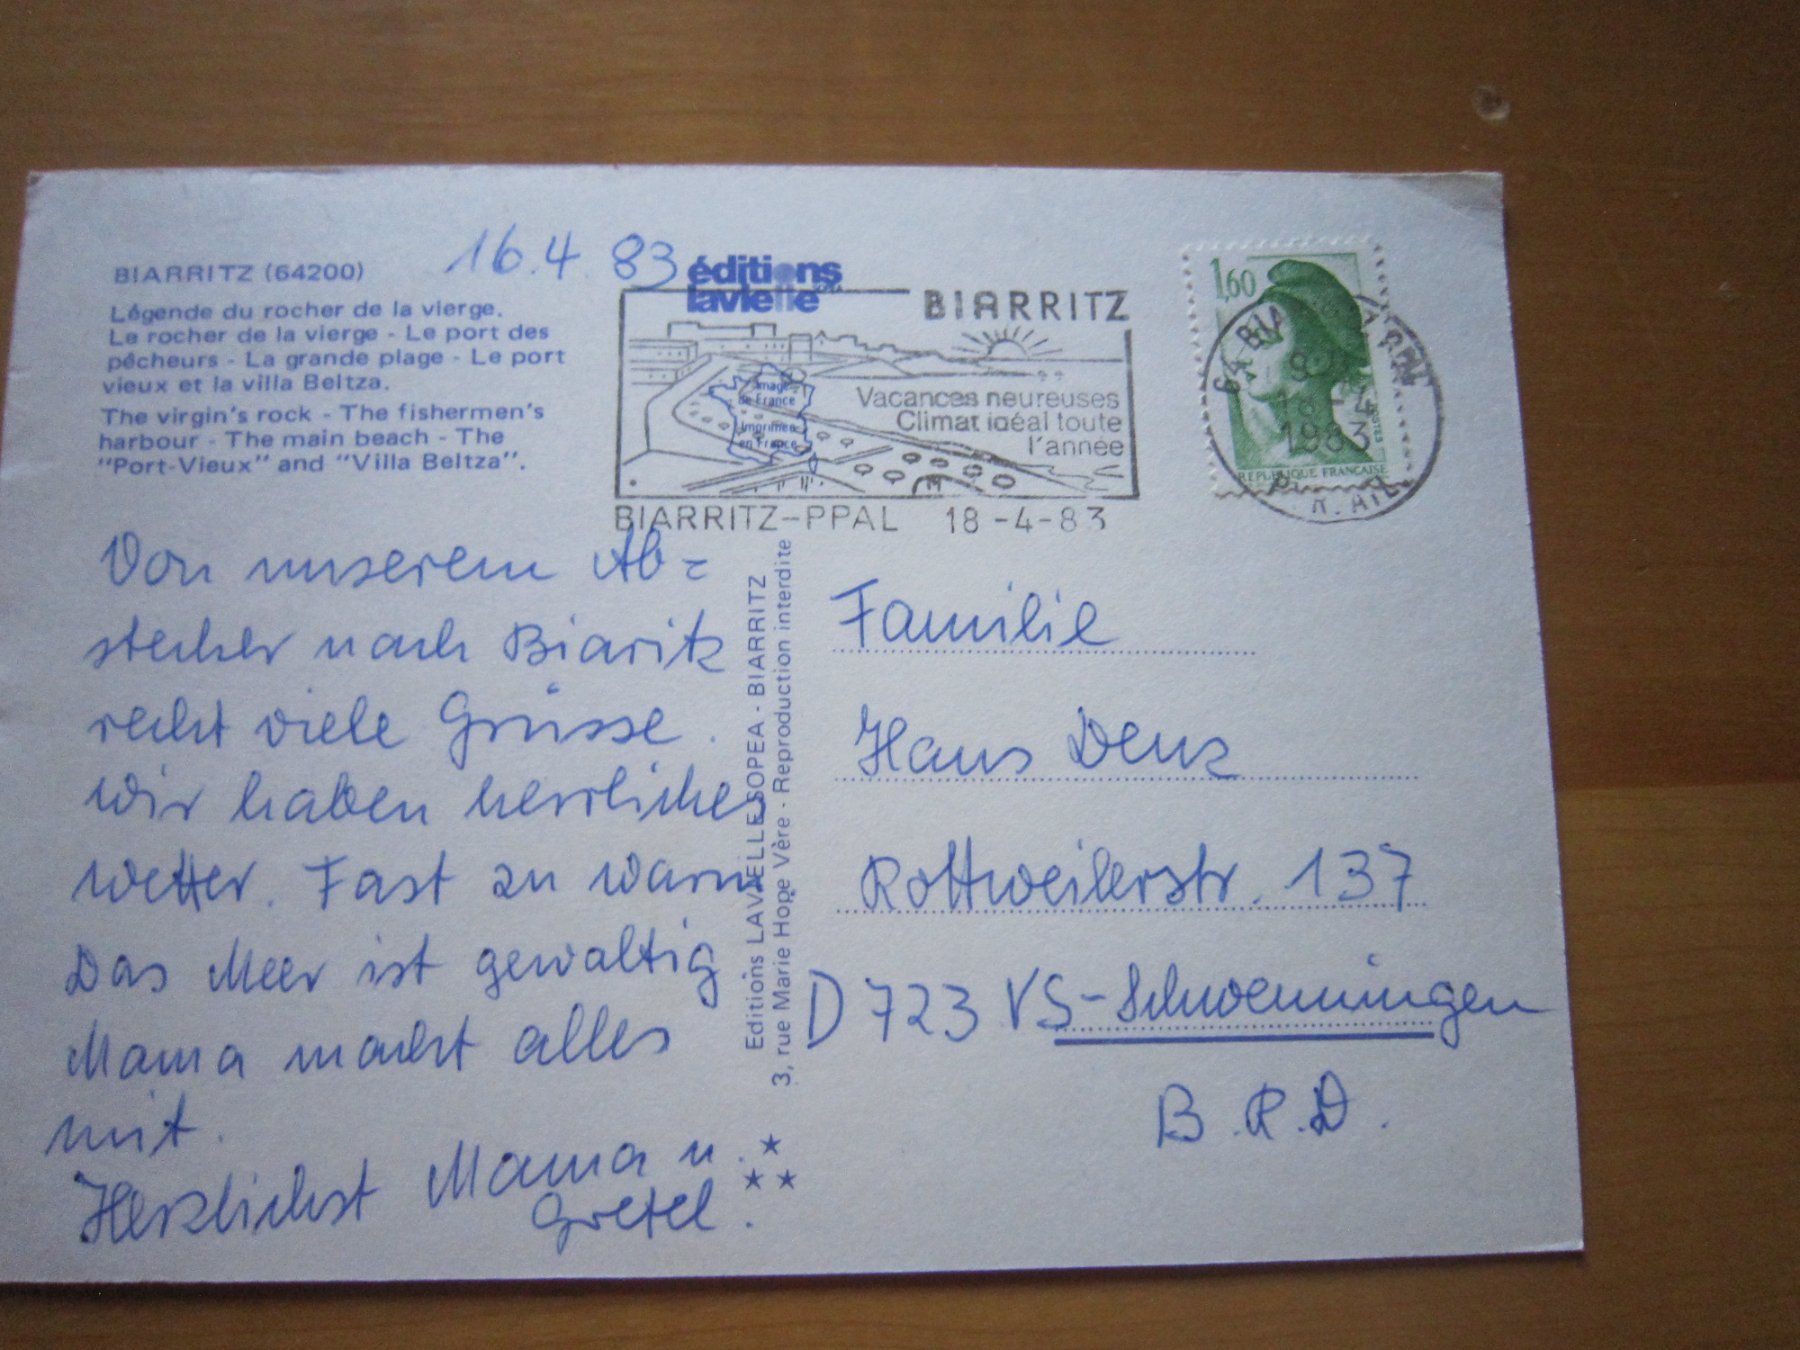 BIARRITZ (64200)
16.4.83
Légende du rocher de la vierge.
Le rocher de la vierge - Le port des
pêcheurs - La grande plage - Le port
vieux et la villa Beltza.
The virgin's rock - The fishermen's
harbour - The main beach - The
"Port-Vieux" and "Villa Beltza".
éditions
lavielle
BIARRITZ
Vacances heureuses
Climat idéal toute
l'année
Image
de France
Imprimée
en France
BIARRITZ-PPAL 18-4-83
1,60
18-4
1983
REPUBLIQUE FRANCAISE
Von unserem Ab=
stecher nach Biaritz
recht viele Grüsse.
Wir haben herrliches
Wetter. Fast zu warm
Das Meer ist gewaltig
Mama macht alles
mit.
Herzlichst Mama u.
Gretel.
Editions LAVIELLE SOPEA - BIARRITZ
3, rue Marie Hope Vère - Reproduction interdite
Familie
Hans Denz
Rottweilerstr. 137
D 723 VS-Schwenningen
B.R.D.